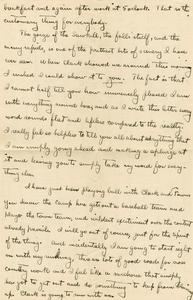 breakfast and again after work at 5 o'clock. That is the
customary thing for everybody.
The gorge of the Sawhill, the falls itself, and the
many rapids, is one of the prettiest bits of scenery I have
ever seen. When Clark showed me around this morning
I wished I could show it to you. The fact is that
I cannot half tell you how immensely pleased I am
with everything around here, and as I write this letter my
word sounds flat and lifeless compared to the reality.
I really feel so helpless to tell you all about anything that
I am simply going ahead and making a splurge of
it and leaving you to simply take my word for every-
thing else.
I have just been playing ball with Clark and
you know the camp has gotten out a baseball team and
plays the town team, and wildest excitement over the contest
already prevails. I will go out of course, just for the spirit
of the thing. And incidentally I am going to start right
in with my walking. There are lots of good roads for cross
country work and I feel like a machine that simply
has got to get out and do something to keep from
Clark is going to run with me